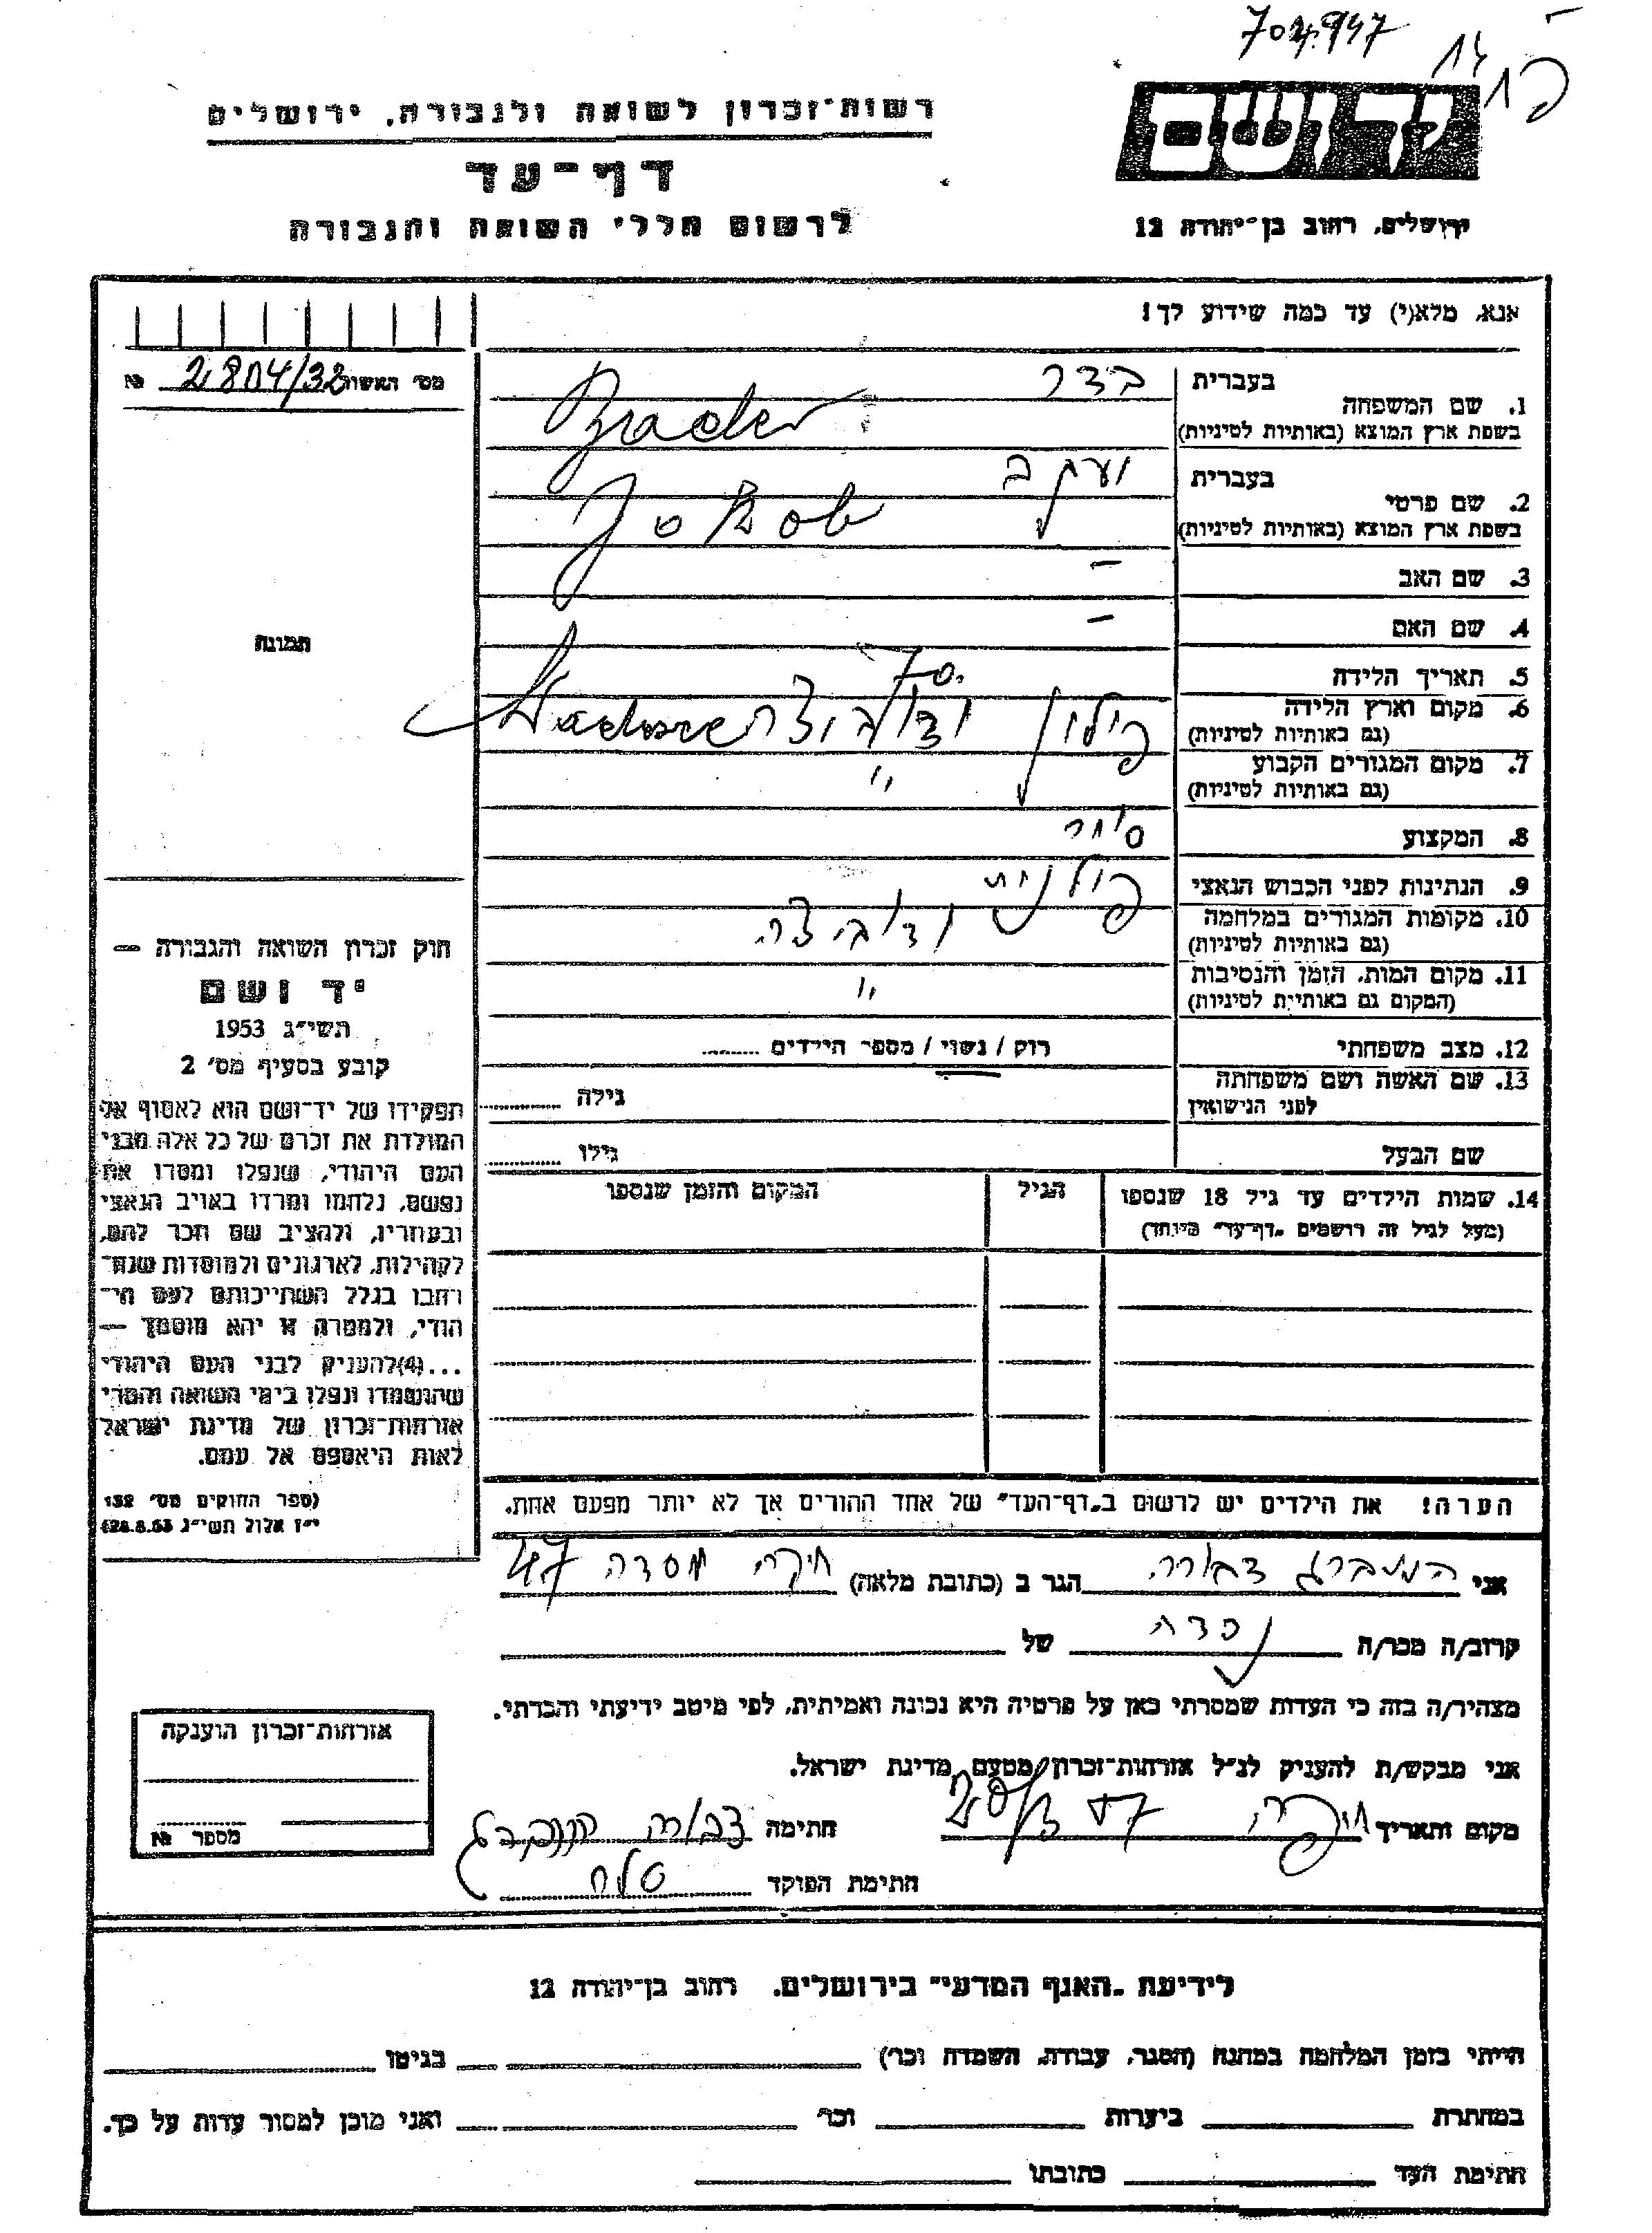 704947
רשות־זכרון לשואה ולגבורה, ירושלים
דף־עד
לרשום חללי השואה והגבורה
ירושלים, רחוב בן־יהודה 12
אנא, מלא(י) עד כמה שידוע לך!
מס' האשה № 2804/32
1. שם המשפחה בעברית בדר
בשפת ארץ המוצא (באותיות לטיניות) Brader
2. שם פרטי בעברית יעקב
בשפת ארץ המוצא (באותיות לטיניות) Jakob
3. שם האב –
4. שם האם –
תמונה
5. תאריך הלידה 70.
6. מקום וארץ הלידה פולין
(גם באותיות לטיניות)
7. מקום המגורים הקבוע "
(גם באותיות לטיניות)
8. המקצוע סוחר
9. הנתינות לפני הכבוש הנאצי פולנית
10. מקומות המגורים במלחמה
(גם באותיות לטיניות)
11. מקום המות, הזמן והנסיבות "
(המקום גם באותיות לטיניות)
12. מצב משפחתי רווק / נשוי / מספר הילדים
13. שם האשה ושם משפחתה גילה
לפני הנישואין
שם הבעל גילו
14. שמות הילדים עד גיל 18 שנספו הגיל המקום והזמן שנספו
(מעל לגיל זה רושמים "דף־עד" מיוחד)
הערה! את הילדים יש לרשום ב"דף־העד" של אחד ההורים אך לא יותר מפעם אחת.
חוק זכרון השואה והגבורה —
יד ושם
תשי"ג 1953
קובע בסעיף מס' 2
תפקידו של יד־ושם הוא לאסוף אל
המולדת את זכרם של כל אלה מבני
העם היהודי, שנפלו ומסרו את
נפשם, נלחמו ומרדו באויב הנאצי
ובעוזריו, ולהציב שם וזכר להם,
לקהילות, לארגונים ולמוסדות שנח־
רבו בגלל השתייכותם לעם הי־
הודי, ולמטרה זו יהא מוסמך —
...(4)להעניק לבני העם היהודי
שהושמדו ונפלו בימי השואה והמרי
אזרחות־זכרון של מדינת ישראל
לאות היאספם אל עמם.
(ספר החוקים מס' 132
י"ז אלול תשי"ג 28.8.53)
אני דבורה הגר ב (כתובת מלאה) חיפה מסדה 47
קרוב/ה מכר/ה נכדה של
מצהיר/ה בזה כי העדות שמסרתי כאן על פרטיה היא נכונה ואמיתית, לפי מיטב ידיעתי והכרתי.
אני מבקש/ת להעניק לנ"ל אזרחות־זכרון מטעם מדינת ישראל.
מקום ותאריך חיפה חתימה דבורה
חתימת הפוקד
אזרחות־זכרון הוענקה
מספר №
לידיעת "האגף המדעי" בירושלים, רחוב בן־יהודה 12
הייתי בזמן המלחמה במחנה (הסגר, עבודה, השמדה וכו') בגיטו
במחתרת ביערות וכו' ואני מוכן למסור עדות על כך.
חתימת העד כתובתו